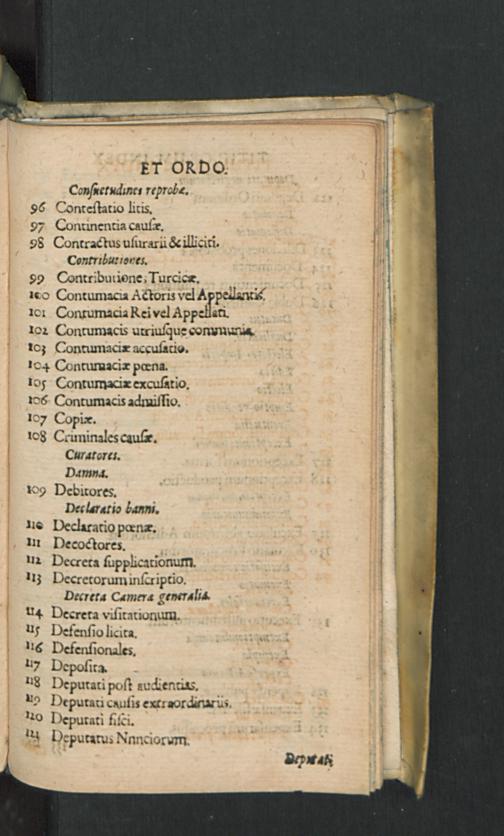 ET ORDO.
Consuetudines reprobæ.
96 Contestatio litis.
97 Continentia causæ.
98 Contractus usurarii & illiciti.
Contributiones.
99 Contributione, Turcicæ.
100 Contumacia Actoris vel Appellantis.
101 Contumacia Rei vel Appellati.
102 Contumacis utriusque communia.
103 Contumaciæ accusatio.
104 Contumaciæ pœna.
105 Contumaciæ excusatio.
106 Contumacis admissio.
107 Copiæ.
108 Criminales causæ.
Curatores.
Damna.
109 Debitores.
Declaratio banni.
110 Declaratio pœnæ.
111 Decoctores.
112 Decreta supplicationum.
113 Decretorum inscriptio.
Decreta Camera generalia.
114 Decreta visitationum.
115 Defensio licita.
116 Defensionales.
117 Deposita.
118 Deputati post audientias.
119 Deputati causis extraordinariis.
120 Deputati fisci.
121 Deputatus Nnnciorum.
Deputati